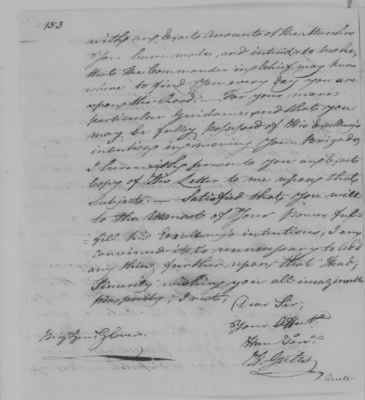 153
with an Exact Account of the Marches
You have made, and intend to make,
that the Commander in chief may know
where to find You every day you are
upon the Road. For your more
particular Guidance, and that you
may be fully possessed of His Excellency's
intentions in moving your Brigade,
I herewith present to You an Exact
Copy of His Letter to me upon that
Subject. — Satisfied that you will
to the Utmost of Your Power ful-
fill his Excellency's intentions, I am
convinced it is unnecessary to add
any thing further upon that Head,
Sincerely wishing you all imaginable
prosperity, I rest,
Dear Sir,
Your Affect.
Hum. Serv.
H. Gates
Brig. Gen. Glover.